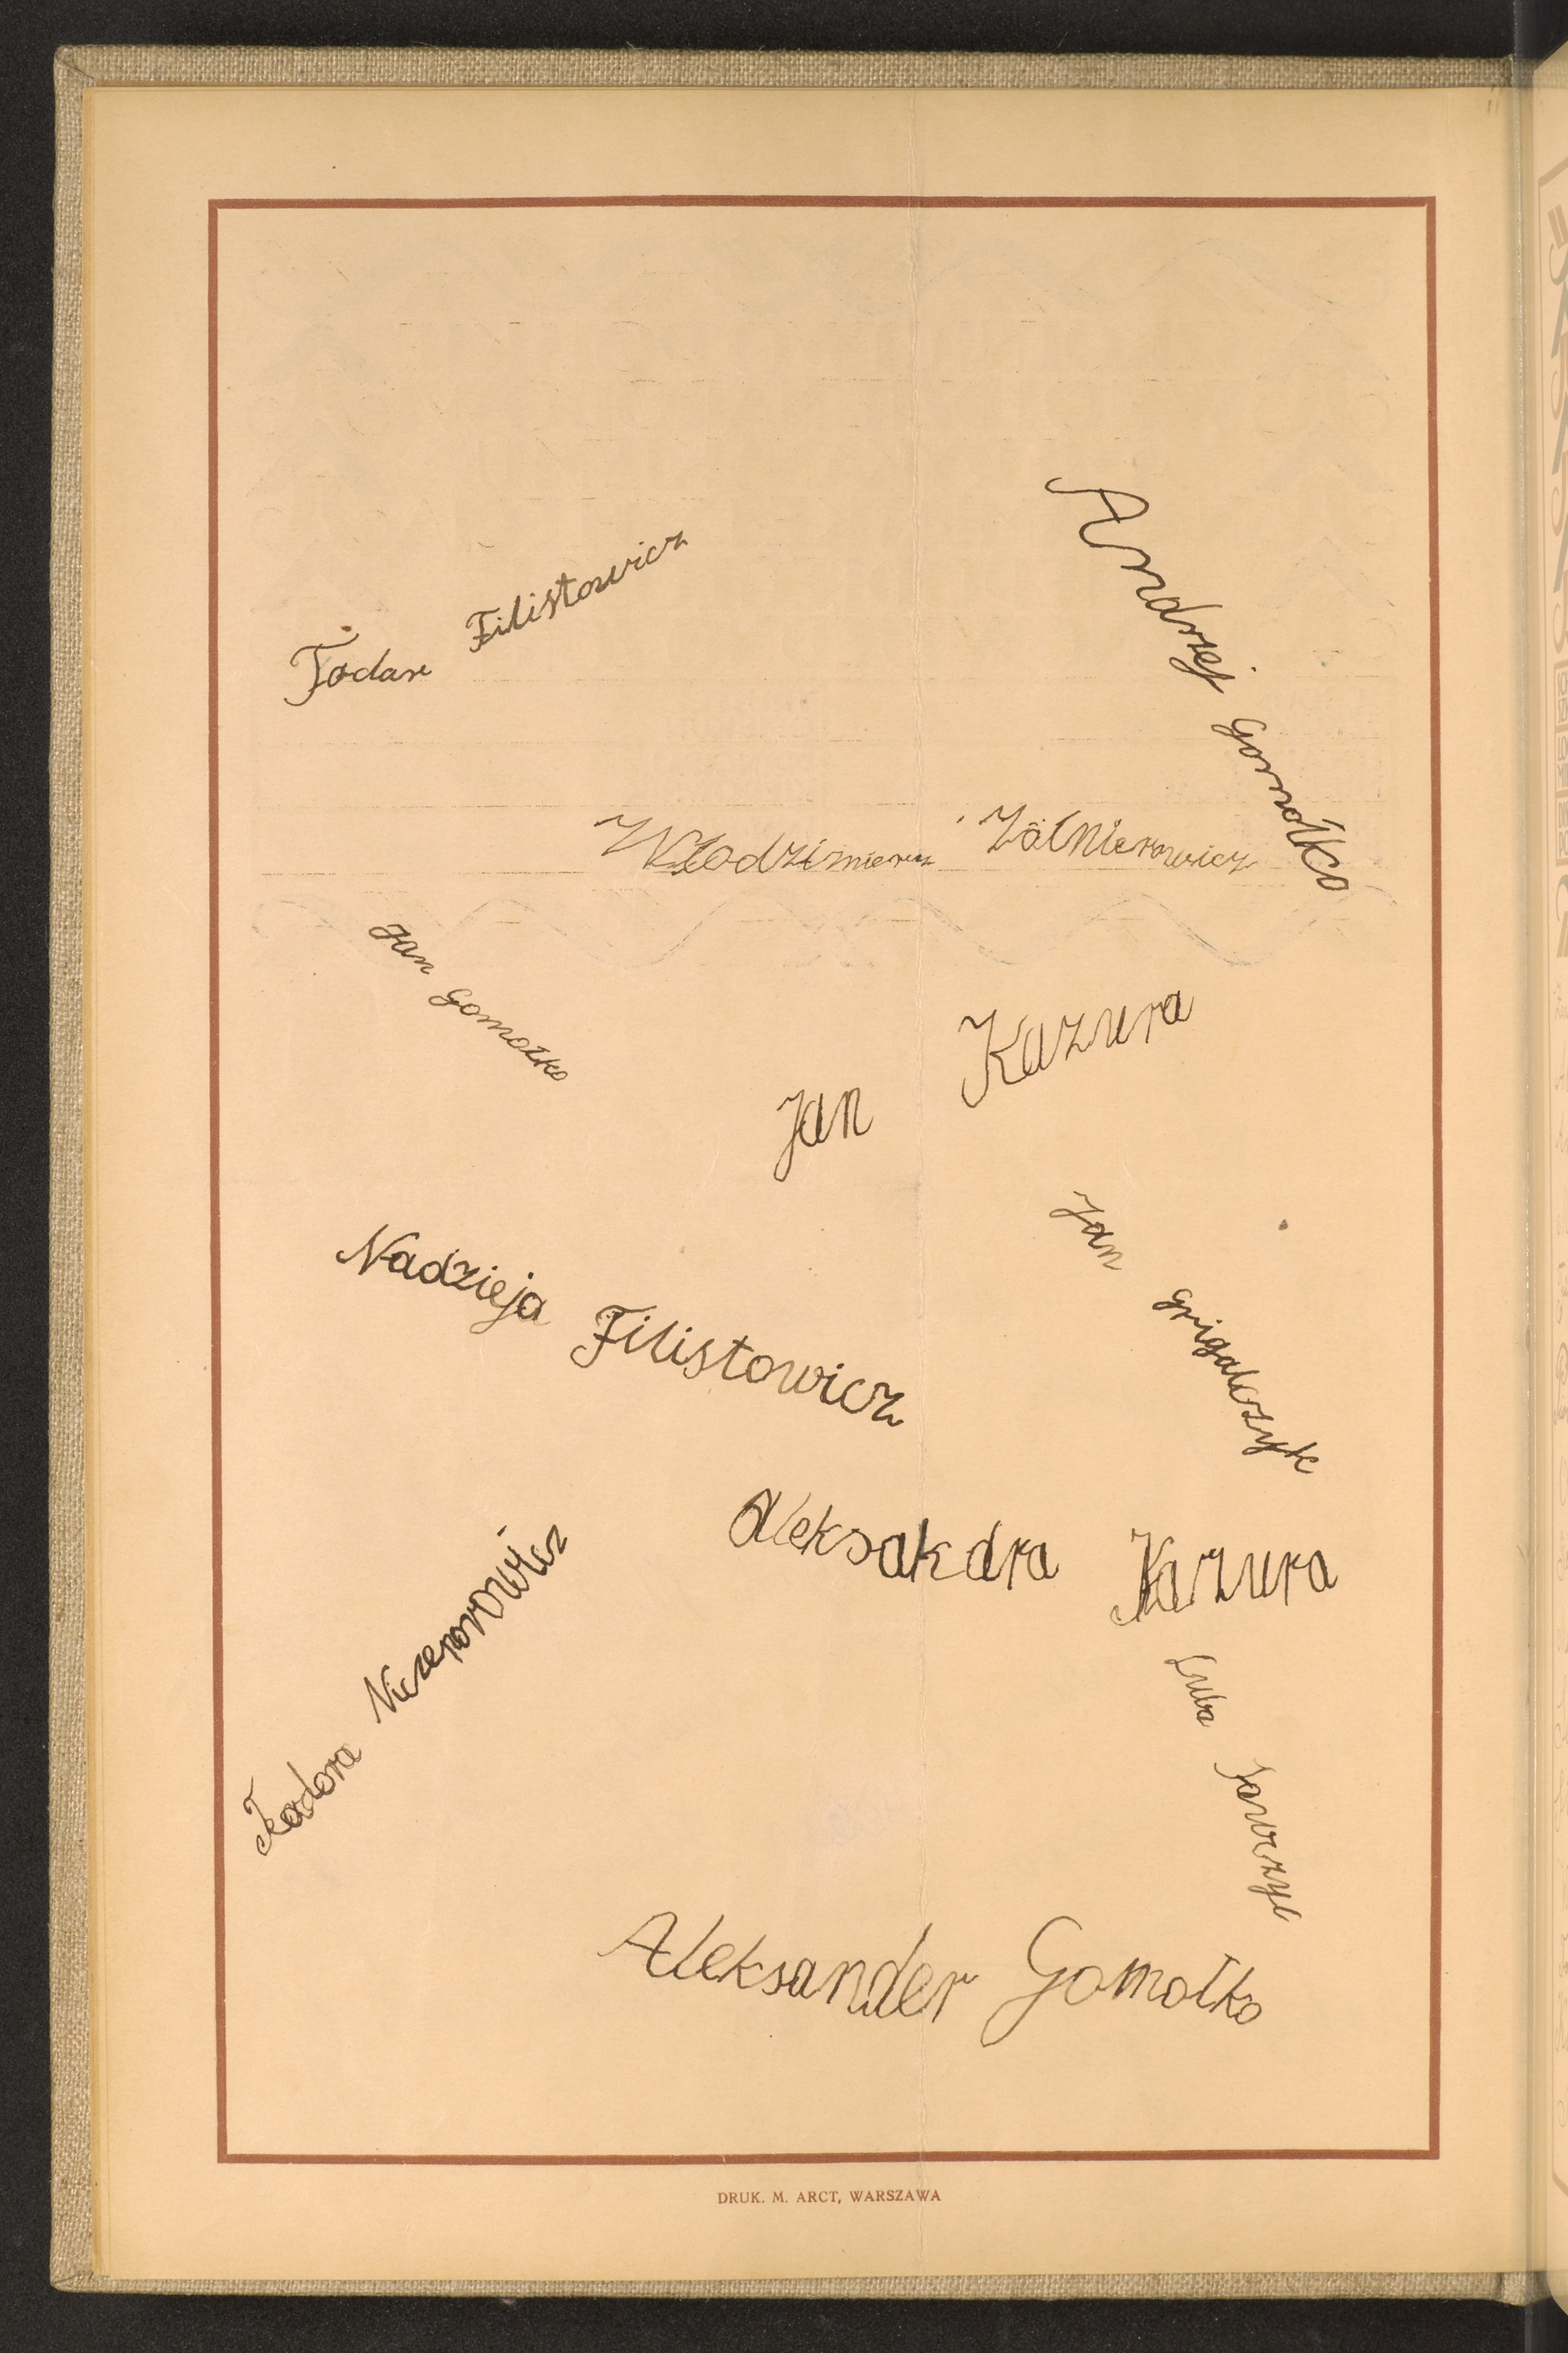 Todar Filistowicz
Andrzej Gomołko
Włodzimierz Żołnierowicz
Jan Gomołko
Jan Kazura
Jan Grigalczyk
Nadzieja Filistowicz
Aleksakdra Kazura
Teodora Niczeporowicz
Luba
Aleksander Gomołko
DRUK. M. ARCT, WARSZAWA